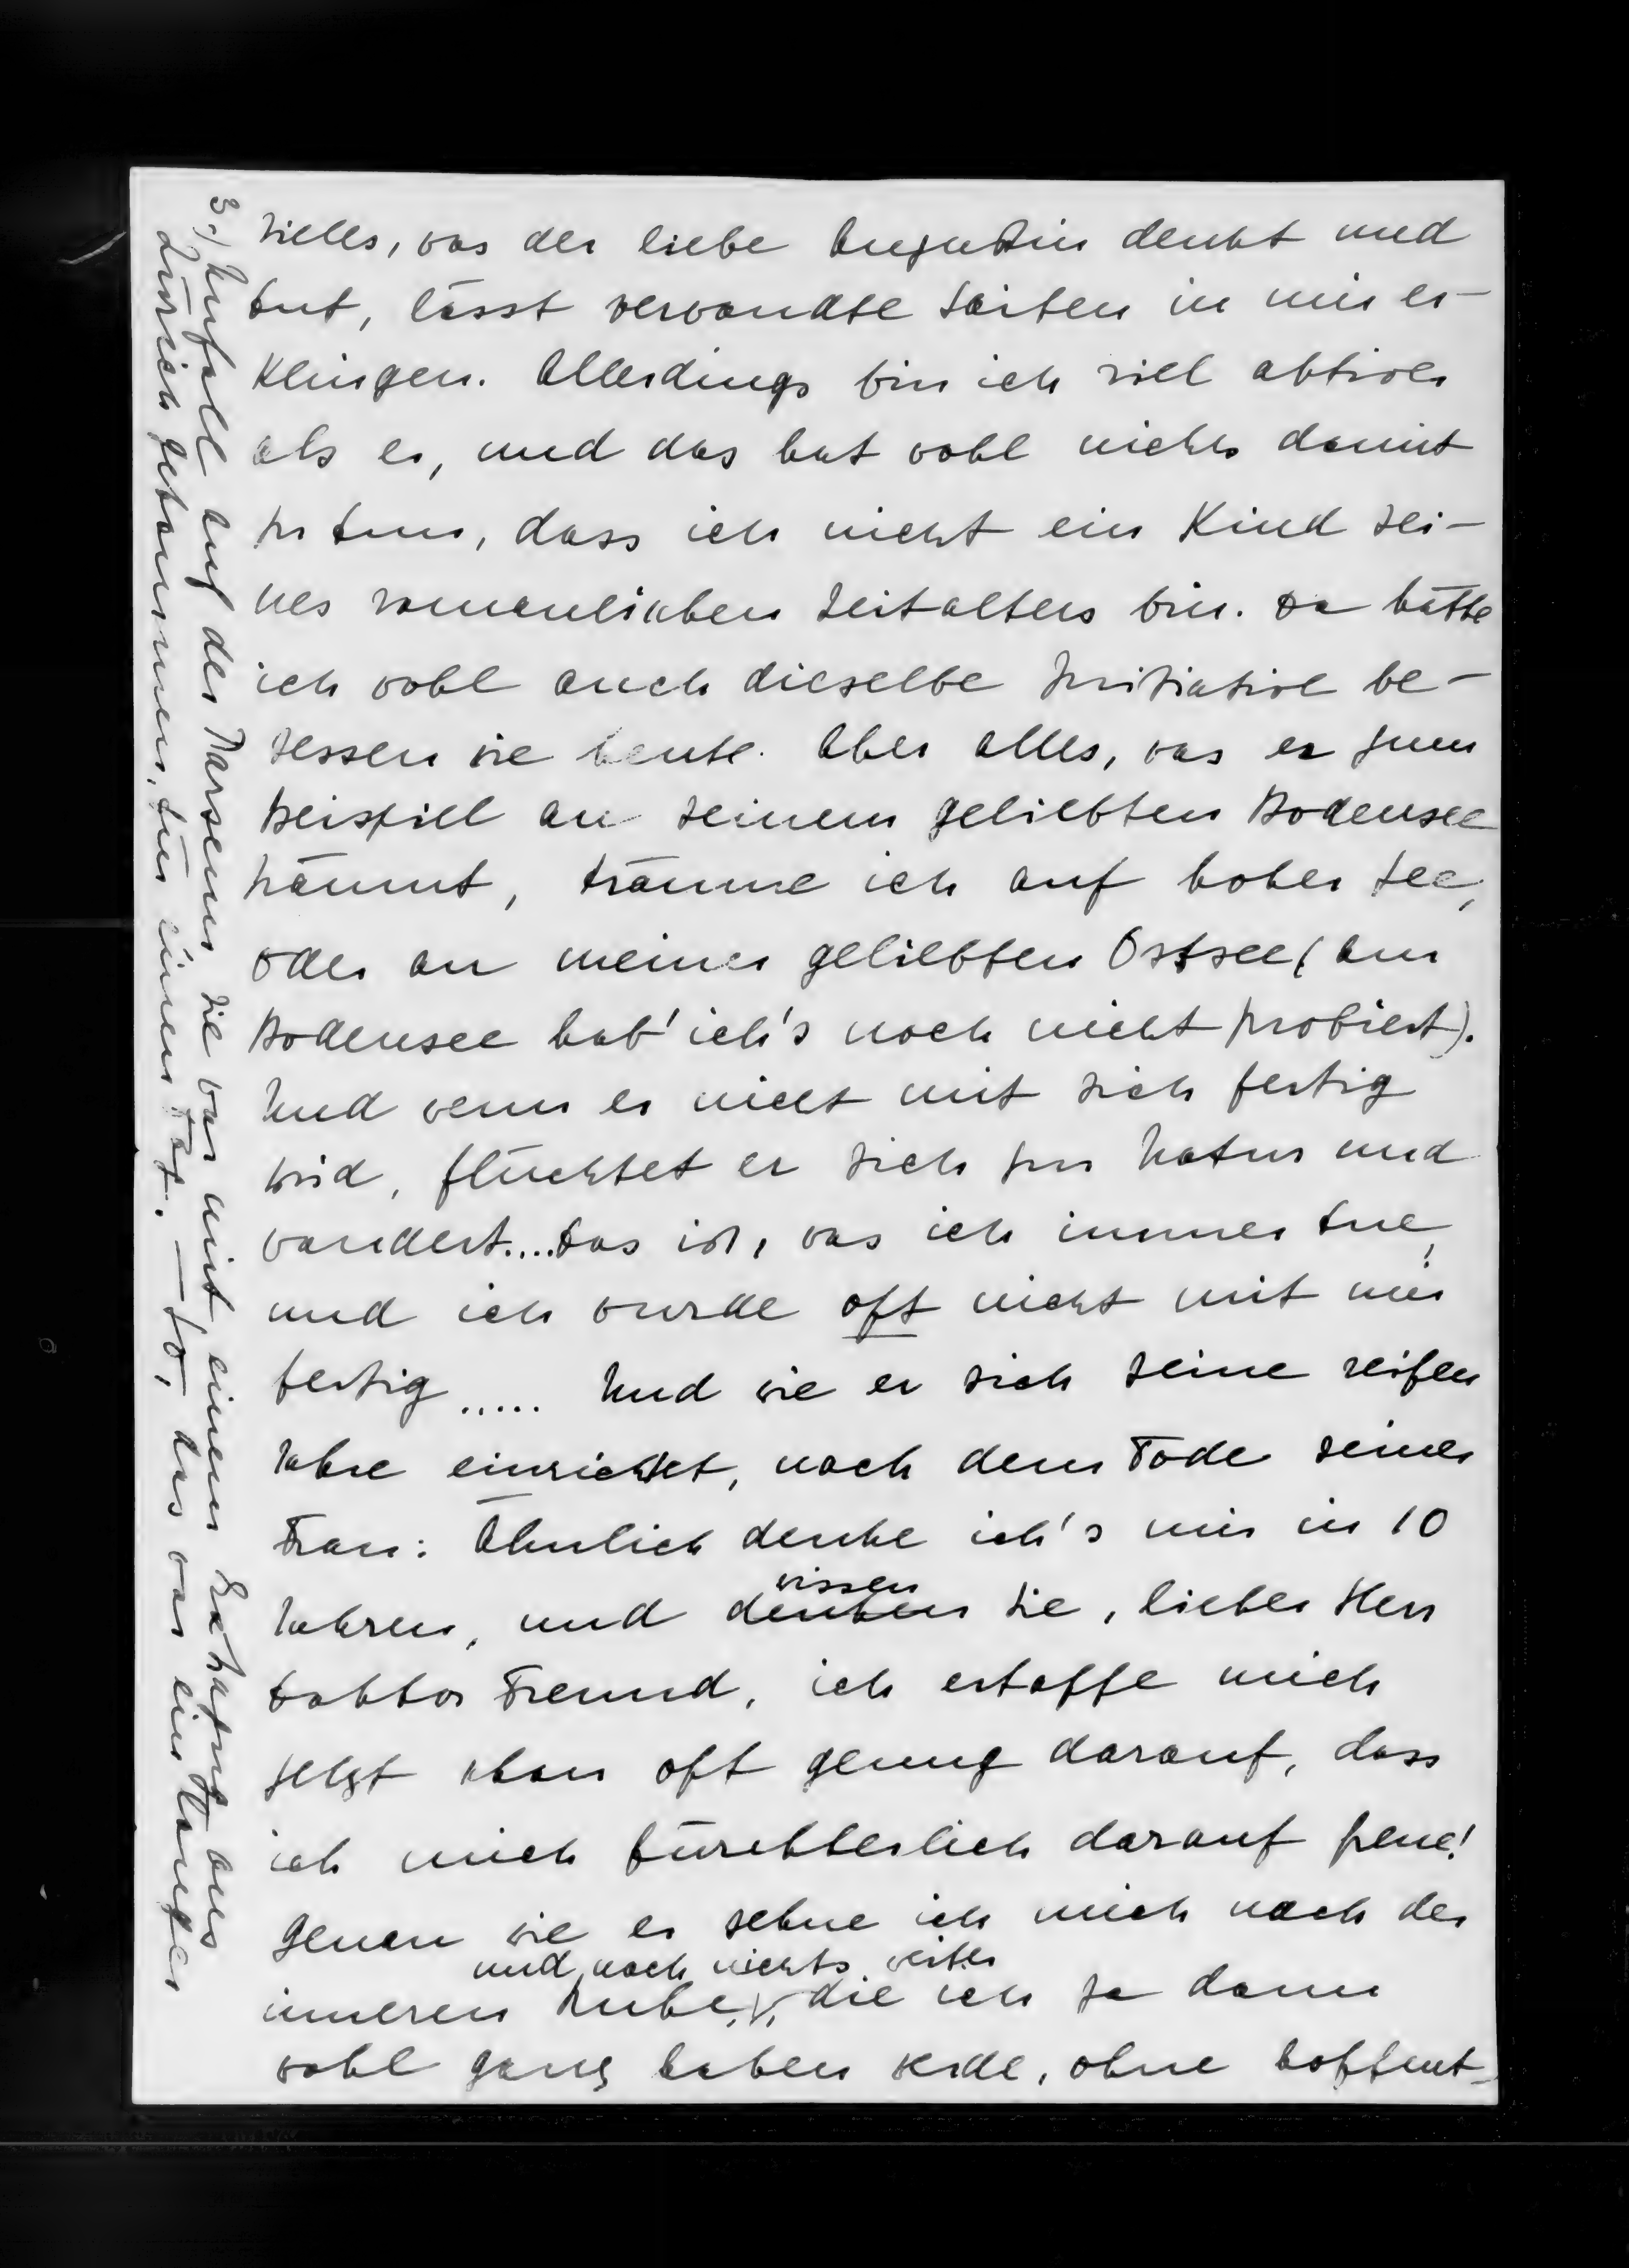 Vieles, was der liebe Augustin denkt und
tut, lässt verwandte Saiten in mir er-
klingen. Allerdings bin ich viel aktiver
als er, und das hat wohl nichts damit
zu tun, dass ich nicht ein Kind sei-
nes romantischen Zeitalters bin. Da hätte
ich wohl auch dieselbe Initiative be-
sessen wie heute. Aber alles, was er zum
Beispiel an seinem geliebten Bodensee
träumt, träume ich auf hoher See,
oder an meiner geliebten Ostsee (am
Bodensee hab' ich's noch nicht probiert).
Und wenn er nicht mit sich fertig
wird, flüchtet er sich zur Natur und
wandert....Das ist, was ich immer tue,
und ich wurde oft nicht mit mir
fertig..... Und wie er sich seine reifen
Jahre einrichtet, nach dem Tode seiner
Frau: Ähnlich denke ich's mir in 10
Jahren, und denken wissen Sie, lieber Herr
Doktor Freund, ich ertappe mich
jetzt schon oft genug darauf, dass
ich mich fürchterlich darauf freue!
Genau wie er sehne ich mich nach der
inneren Ruhe, und nach nichts weiter, die ich ja dann
wohl ganz haben werde, ohne hoffent-
3.) Unfall auf der Parsenn sie war mit einem Extrazug aus
Zürich gekommen, für einen Tag. — So, das war ein langer